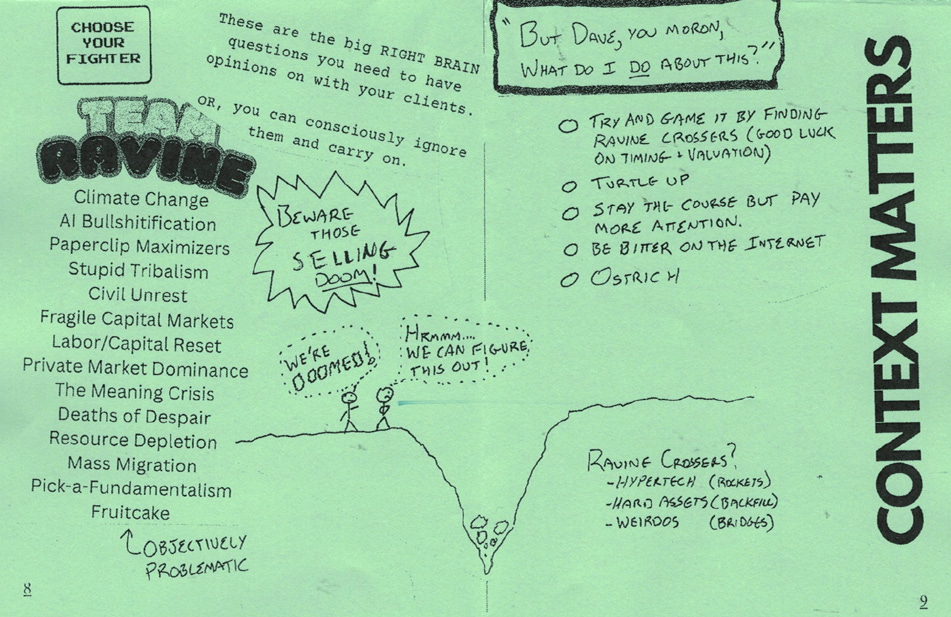 CHOOSE
YOUR
FIGHTER
These are the big RIGHT BRAIN
questions you need to have
opinions on with your clients.
OR, you can consciously ignore
them and carry on.
TEAM
RAVINE
Climate Change
AI Bullshitification
Paperclip Maximizers
Stupid Tribalism
Civil Unrest
Fragile Capital Markets
Labor/Capital Reset
Private Market Dominance
The Meaning Crisis
Deaths of Despair
Resource Depletion
Mass Migration
Pick-a-Fundamentalism
Fruitcake
OBJECTIVELY
PROBLEMATIC
BEWARE
THOSE
SELLING
DOOM!
WE'RE
DOOMED!
HRMMM....
WE CAN FIGURE
THIS OUT!
8
"BUT DAVE, YOU MORON,
WHAT DO I DO ABOUT THIS?"
O TRY AND GAME IT BY FINDING
RAVINE CROSSERS (GOOD LUCK
ON TIMING + VALUATION)
O TURTLE UP
O STAY THE COURSE BUT PAY
MORE ATTENTION.
O BE BITTER ON THE INTERNET
O OSTRICH
RAVINE CROSSERS?
-HYPERTECH (ROCKETS)
-HARD ASSETS (BACKFILL)
-WEIRDOS (BRIDGES)
CONTEXT MATTERS
9